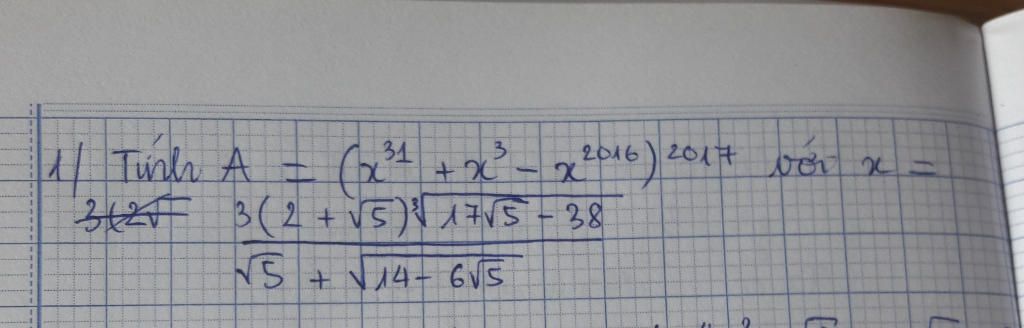 1/ Tính A = (x³¹ + x³ - x²⁰¹⁶)²⁰¹⁷ với x =
3(2√ 3(2 + √5)³√17√5 - 38
√5 + √14 - 6√5